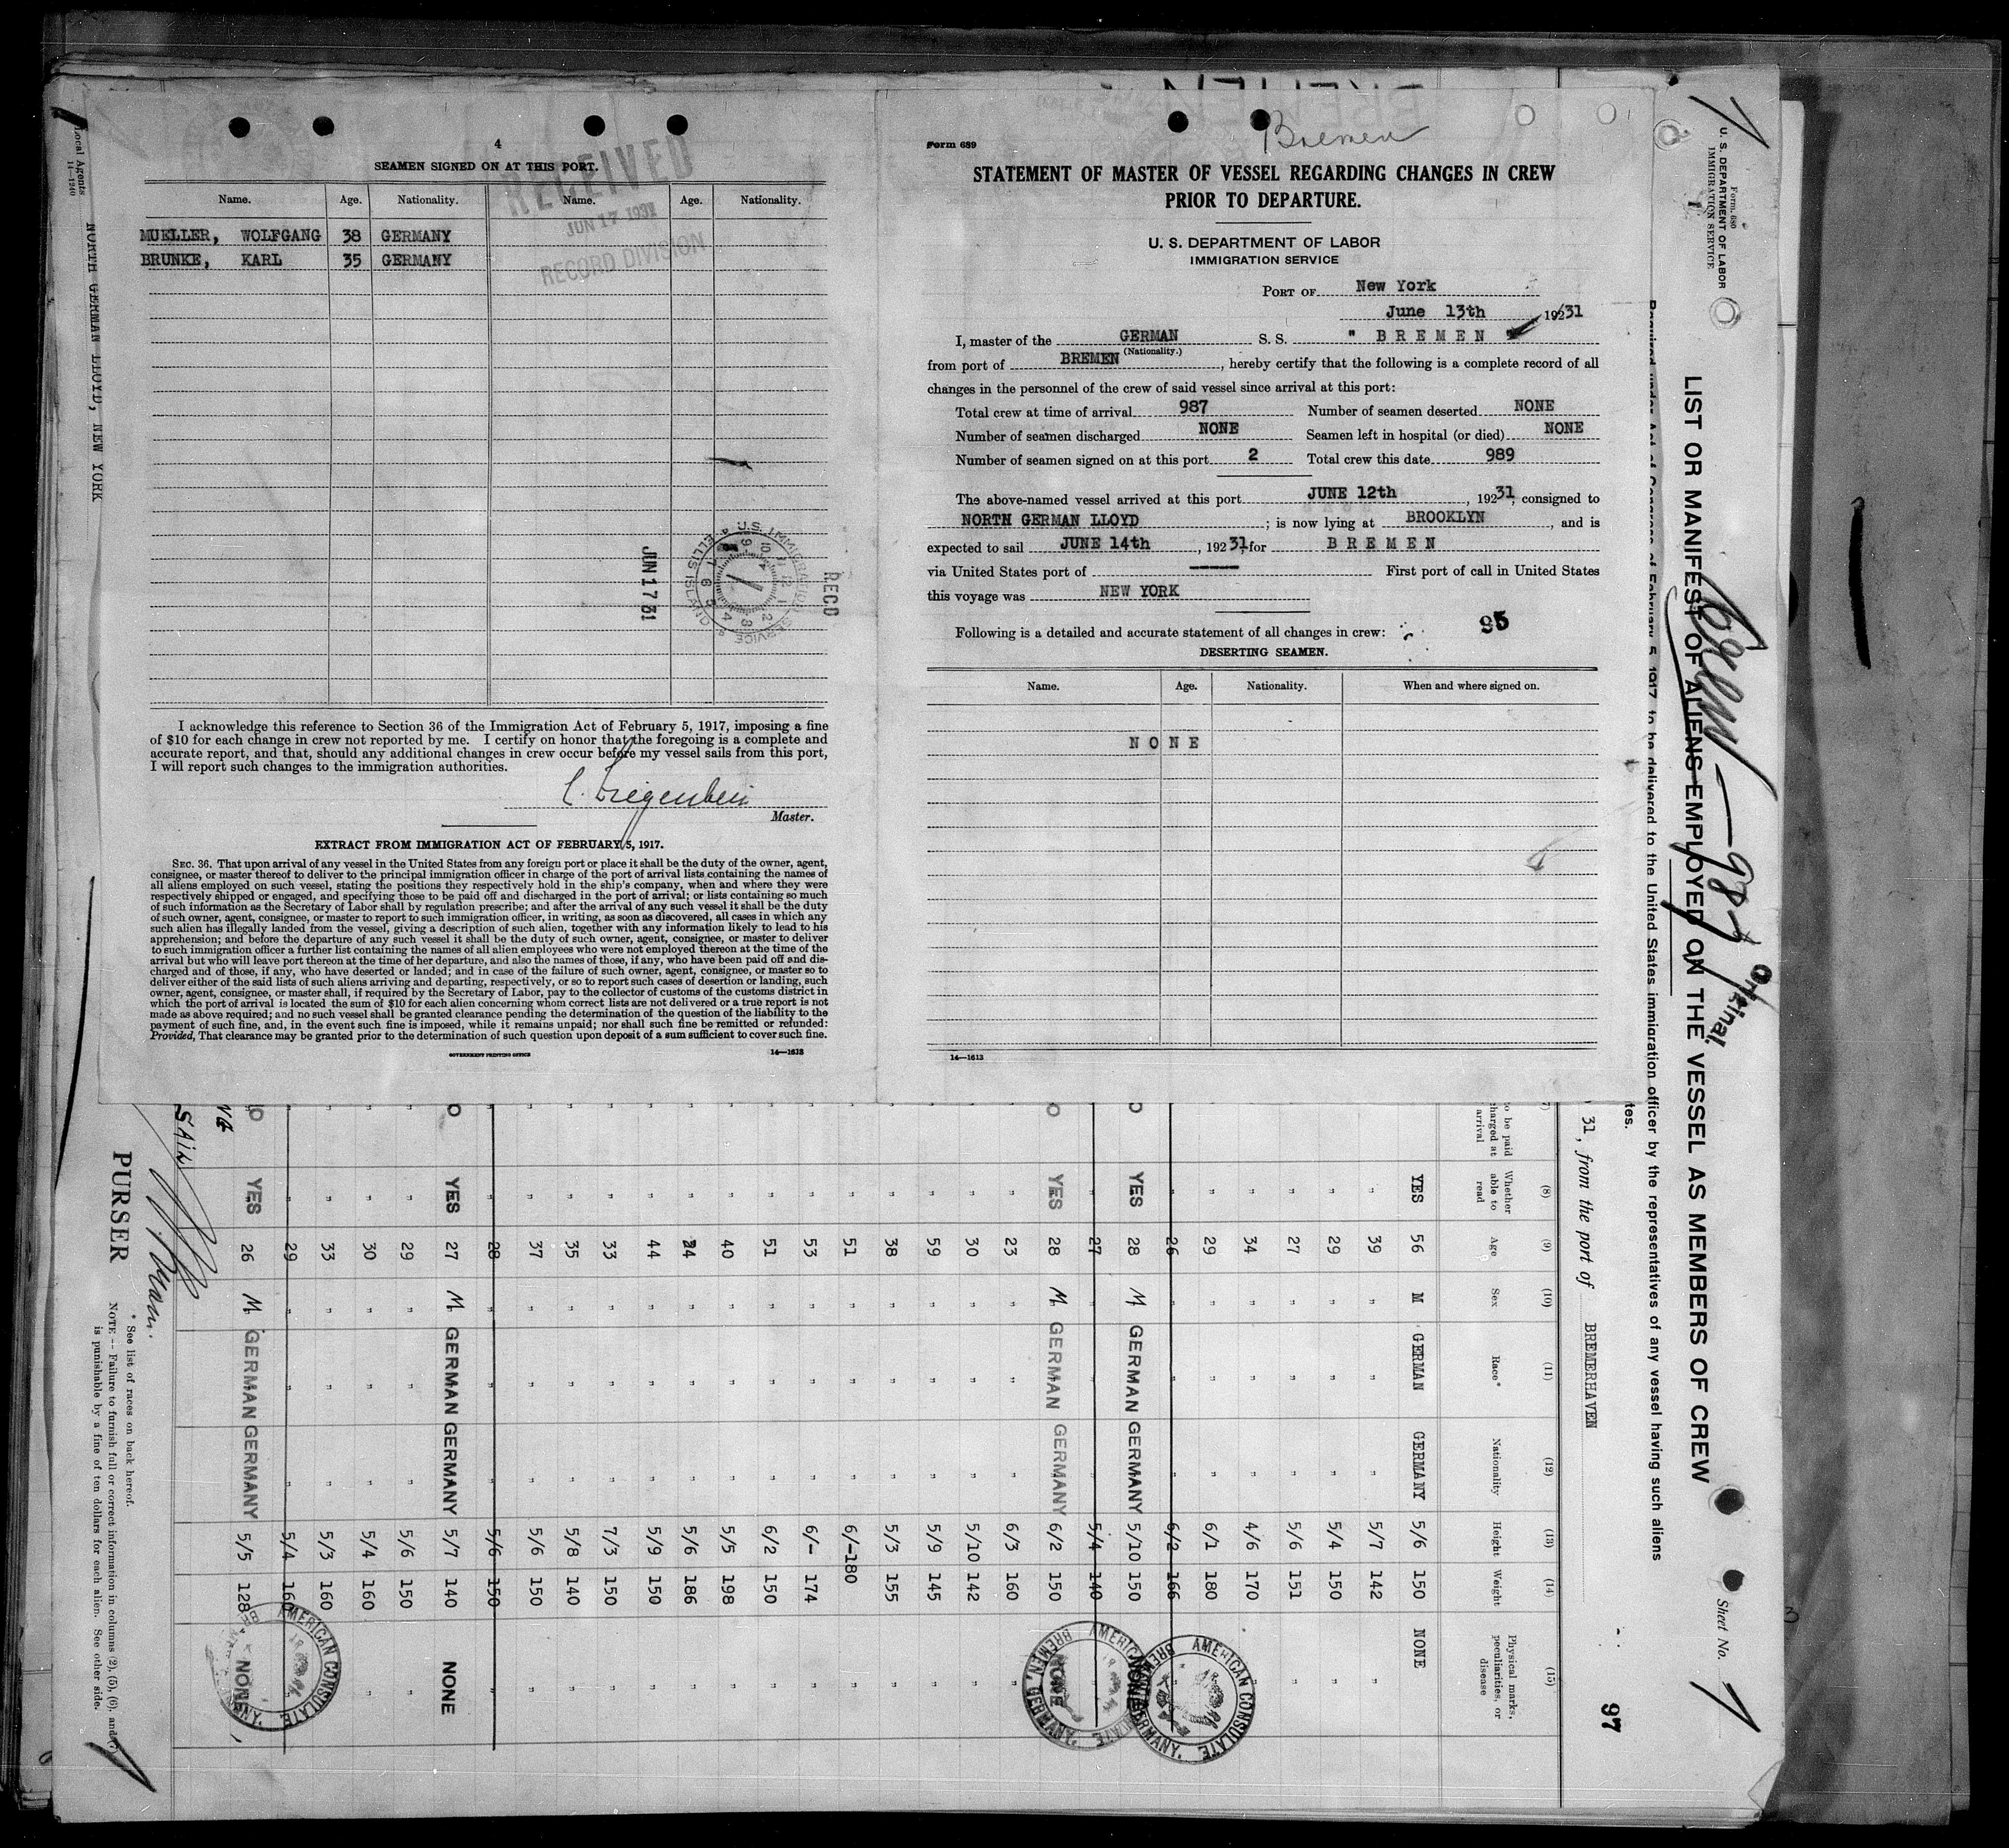 4
SEAMEN SIGNED ON AT THIS PORT.
RECEIVED
JUN 17 1931
RECORD DIVISION
Name. Age. Nationality. Name. Age. Nationality.
MUELLER, WOLFGANG 38 GERMANY
BRUNKE, KARL 35 GERMANY
JUN 17 31
U.S. IMMIGRATION SERVICE
ELLIS ISLAND
REC'D
I acknowledge this reference to Section 36 of the Immigration Act of February 5, 1917, imposing a fine
of $10 for each change in crew not reported by me. I certify on honor that the foregoing is a complete and
accurate report, and that, should any additional changes in crew occur before my vessel sails from this port,
I will report such changes to the immigration authorities.
Master.
EXTRACT FROM IMMIGRATION ACT OF FEBRUARY 5, 1917.
SEC. 36. That upon arrival of any vessel in the United States from any foreign port or place it shall be the duty of the owner, agent,
consignee, or master thereof to deliver to the principal immigration officer in charge of the port of arrival lists containing the names of
all aliens employed on such vessel, stating the positions they respectively hold in the ship's company, when and where they were
respectively shipped or engaged, and specifying those to be paid off and discharged in the port of arrival; or lists containing so much
of such information as the Secretary of Labor shall by regulation prescribe; and after the arrival of any such vessel it shall be the duty
of such owner, agent, consignee, or master to report to such immigration officer, in writing, as soon as discovered, all cases in which any
such alien has illegally landed from the vessel, giving a description of such alien, together with any information likely to lead to his
apprehension; and before the departure of any such vessel it shall be the duty of such owner, agent, consignee, or master to deliver
to such immigration officer a further list containing the names of all alien employees who were not employed thereon at the time of the
arrival but who will leave port thereon at the time of her departure, and also the names of those, if any, who have been paid off and dis-
charged and of those, if any, who have deserted or landed; and in case of the failure of such owner, agent, consignee, or master so to
deliver either of the said lists of such aliens arriving and departing, respectively, or so to report such cases of desertion or landing, such
owner, agent, consignee, or master shall, if required by the Secretary of Labor, pay to the collector of customs of the customs district in
which the port of arrival is located the sum of $10 for each alien concerning whom correct lists are not delivered or a true report is not
made as above required; and no such vessel shall be granted clearance pending the determination of the question of the liability to the
payment of such fine, and, in the event such fine is imposed, while it remains unpaid; nor shall such fine be remitted or refunded:
Provided, That clearance may be granted prior to the determination of such question upon deposit of a sum sufficient to cover such fine.
GOVERNMENT PRINTING OFFICE 14—1613
Bremen
Form 689
STATEMENT OF MASTER OF VESSEL REGARDING CHANGES IN CREW
PRIOR TO DEPARTURE.
U. S. DEPARTMENT OF LABOR
IMMIGRATION SERVICE
PORT OF New York
June 13th 19231
I, master of the GERMAN S. S. " B R E M E N "
(Nationality.)
from port of BREMEN, hereby certify that the following is a complete record of all
changes in the personnel of the crew of said vessel since arrival at this port:
Total crew at time of arrival 987 Number of seamen deserted NONE
Number of seamen discharged NONE Seamen left in hospital (or died) NONE
Number of seamen signed on at this port 2 Total crew this date 989
The above-named vessel arrived at this port JUNE 12th, 19231, consigned to
NORTH GERMAN LLOYD; is now lying at BROOKLYN, and is
expected to sail JUNE 14th, 19231 for B R E M E N
via United States port of —— First port of call in United States
this voyage was NEW YORK
Following is a detailed and accurate statement of all changes in crew: 95
DESERTING SEAMEN.
Name. Age. Nationality. When and where signed on.
N O N E
14—1613
Form 680
U. S. DEPARTMENT OF LABOR
IMMIGRATION SERVICE
LIST OR MANIFEST OF ALIENS EMPLOYED ON THE VESSEL AS MEMBERS OF CREW
Sheet No. 1
987
Original.
Required under Act of Congress of February 5, 1917, to be delivered to the United States immigration officer by the representatives of any vessel having such aliens
31, from the port of BREMERHAVEN
97
(8) (9) (10) (11) (12) (13) (14) (15)
to be paid
charged at
arrival
Whether
able to
read
Age
Sex
Race*
Nationality
Height
Weight
Physical marks,
peculiarities, or
disease
YES 56 M GERMAN GERMANY 5/6 150 NONE
" 39 " " " 5/7 142 "
" 29 " " " 5/4 150 "
" 27 " " " 5/6 151 "
" 34 " " " 4/6 170 "
" 29 " " " 6/1 180 "
" 26 " " " 6/2 166 "
YES 28 M GERMAN GERMANY 5/10 150 NONE
" 27 " " " 5/4 140 "
YES 28 M GERMAN GERMANY 6/2 150 NONE
" 23 " " " 6/3 160 "
" 30 " " " 5/10 142 "
" 59 " " " 5/9 145 "
" 38 " " " 5/3 155 "
" 51 " " " 6/-180 "
" 53 " " " 6/- 174 "
" 51 " " " 6/2 150 "
" 40 " " " 5/5 198 "
" 24 " " " 5/6 186 "
" 44 " " " 5/9 150 "
" 33 " " " 7/3 150 "
" 35 " " " 5/8 140 "
" 37 " " " 5/6 150 "
" 28 " " " 5/6 150 "
YES 27 M GERMAN GERMANY 5/7 140 NONE
" 29 " " " 5/6 150 "
" 30 " " " 5/4 160 "
" 33 " " " 5/3 160 "
" 29 " " " 5/4 160 "
YES 26 M GERMAN GERMANY 5/5 128 NONE
AMERICAN CONSULATE
BREMEN, GERMANY.
PURSER
* See list of races on back hereof.
NOTE — Failure to furnish full or correct information in columns (2), (5), (6), and (7)
is punishable by a fine of ten dollars for each alien. See other side.
Local Agents
14—1240
NORTH GERMAN LLOYD, NEW YORK